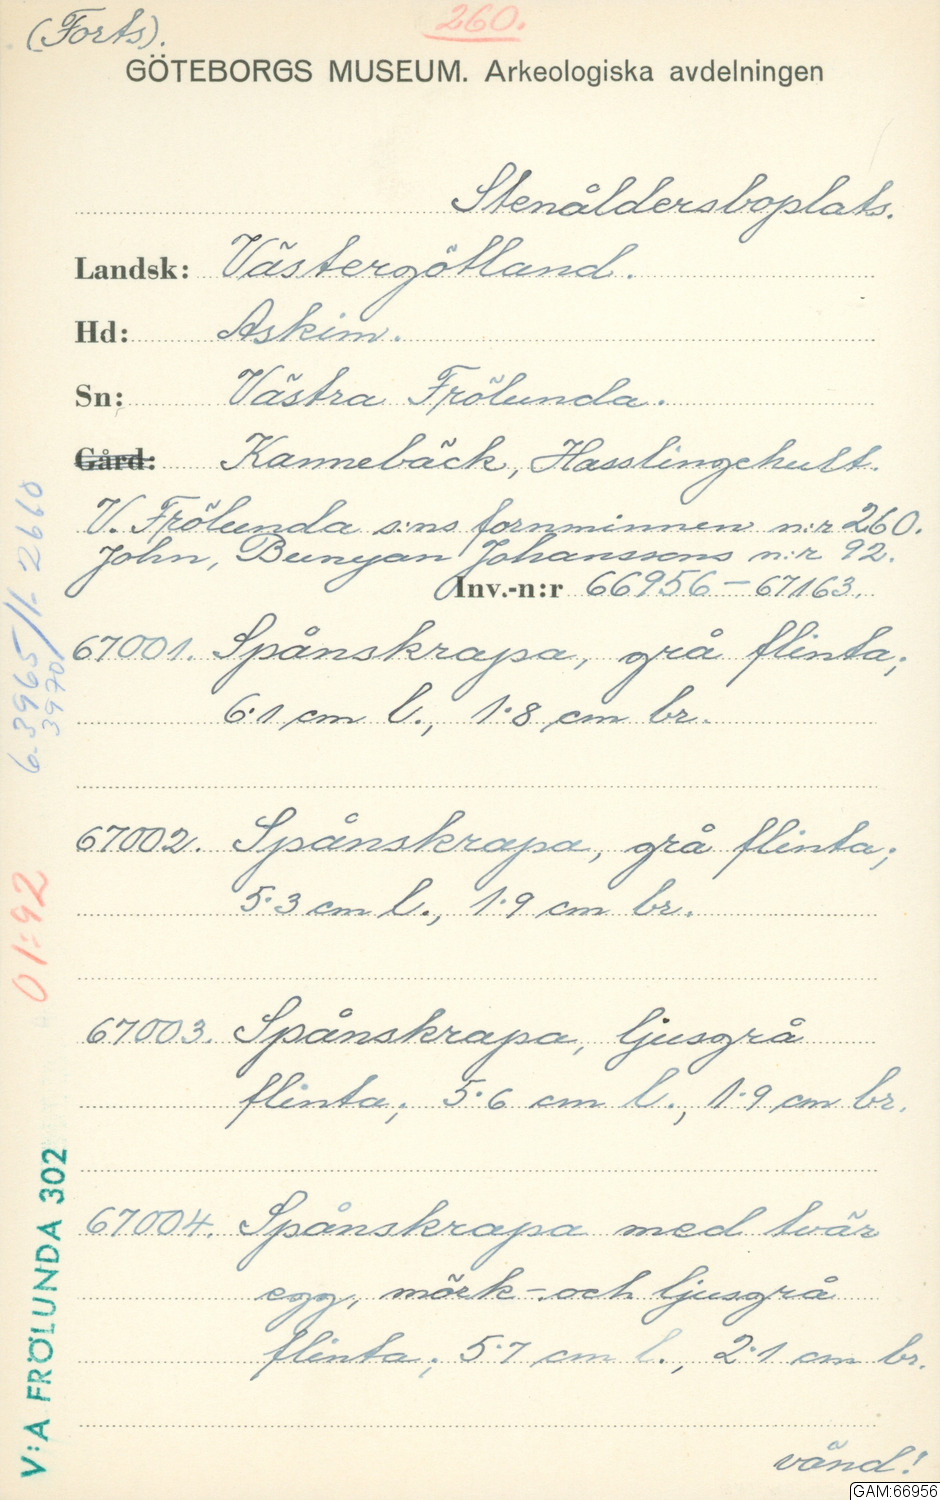 (Forts). 260.
GÖTEBORGS MUSEUM. Arkeologiska avdelningen
Stenåldersboplats.
Landsk: Västergötland.
Hd: Askim.
Sn: Västra Frölunda.
Gård: Kannebäck, Hasslingehult.
V. Frölunda s:ns fornminnen n:r 260.
John, Bunyan Johanssons n:r 92.
Inv.-n:r 66956-67163.
67001. Spånskrapa, grå flinta;
6·1 cm l., 1·8 cm br.
67002. Spånskrapa, grå flinta;
5·3 cm l., 1·9 cm br.
67003. Spånskrapa, ljusgrå
flinta; 5·6 cm l., 1·9 cm br.
67004. Spånskrapa med tvär
egg, mörk- och ljusgrå
flinta; 5·7 cm l., 2·1 cm br.
vänd!
3970
01:92
V:A FRÖLUNDA 302
GAM:66956